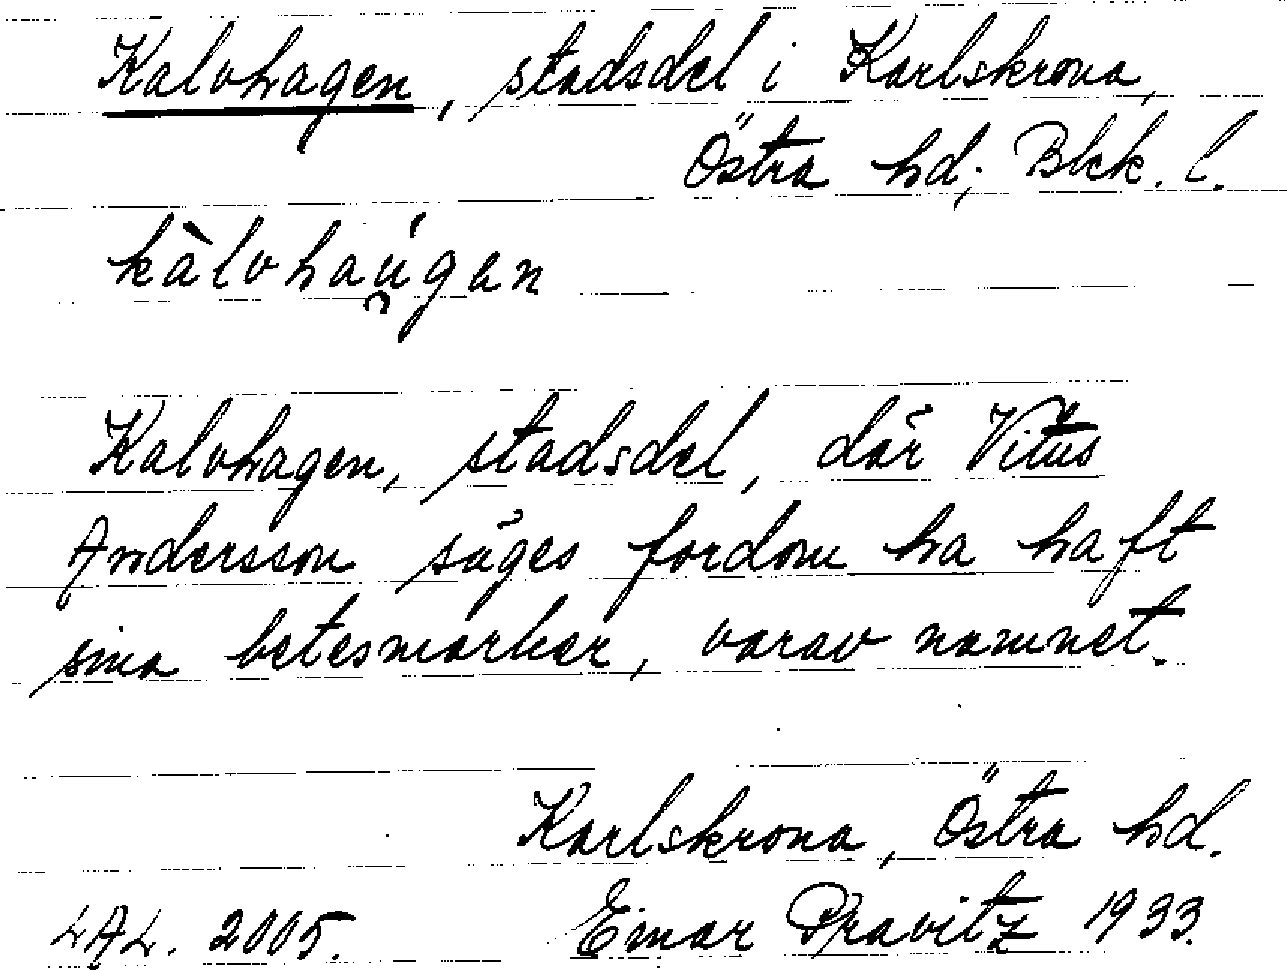 Kalvhagen, stadsdel i Karlskrona,
Östra hd; Blek. l.
kàlvhaúgan
Kalvhagen, stadsdel, där Vitus
Andersson säges fordom ha haft
sina betesmarker, varav namnet.
Karlskrona, Östra hd.
LAL. 2005. Einar Pravitz 1933.